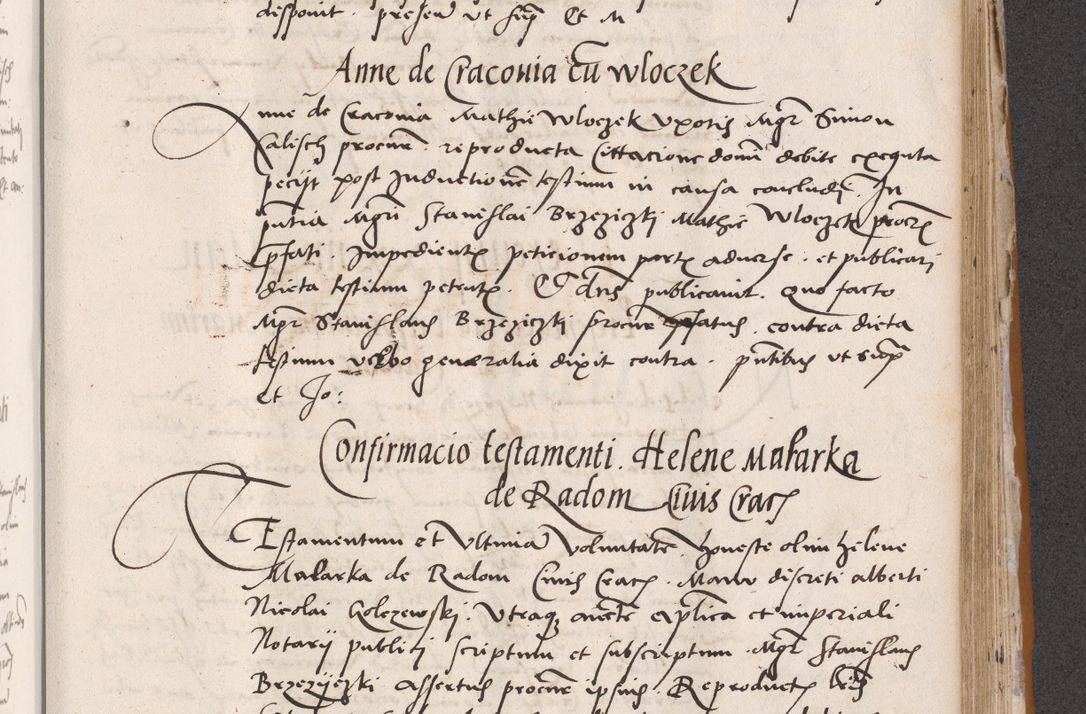 disponit. presen ut sup Et M
Anne de Craconia cũ Wloczek
Anne de Craconia Mathie Wloczek Uxoris Mgr Simon
Kalisch procur reproducta Cittacione domi debite exequta
pecijt post Inductionem testium in causa concludi. In
pntia Mgri Stanislai Brzeziczkj Mathie Wloczek procur
pfati. Impedientis peticionem partis adverse. et publicari
dicta testium petentis. Et dns publicavit. Quo facto
Mgr Stanislaus Brzeziczkj procur pfatus. contra dicta
testium verbo generalia dixit contra. pntibus ut sup
et Jo:
Confirmacio testamenti. Helene Malarka
de Radom Civis Crac
Testamentum et Ultima Voluntate. honeste olim helene
Malarka de Radom Civis Crac. Manu discreti alberti
Nicolai Golczewskj. Utraq aucte aplica et imperiali
Notarij publici scriptum et subscriptum. Mgr Stanislaus
Brzezyczki Assertus procur ipsius. Reproductis